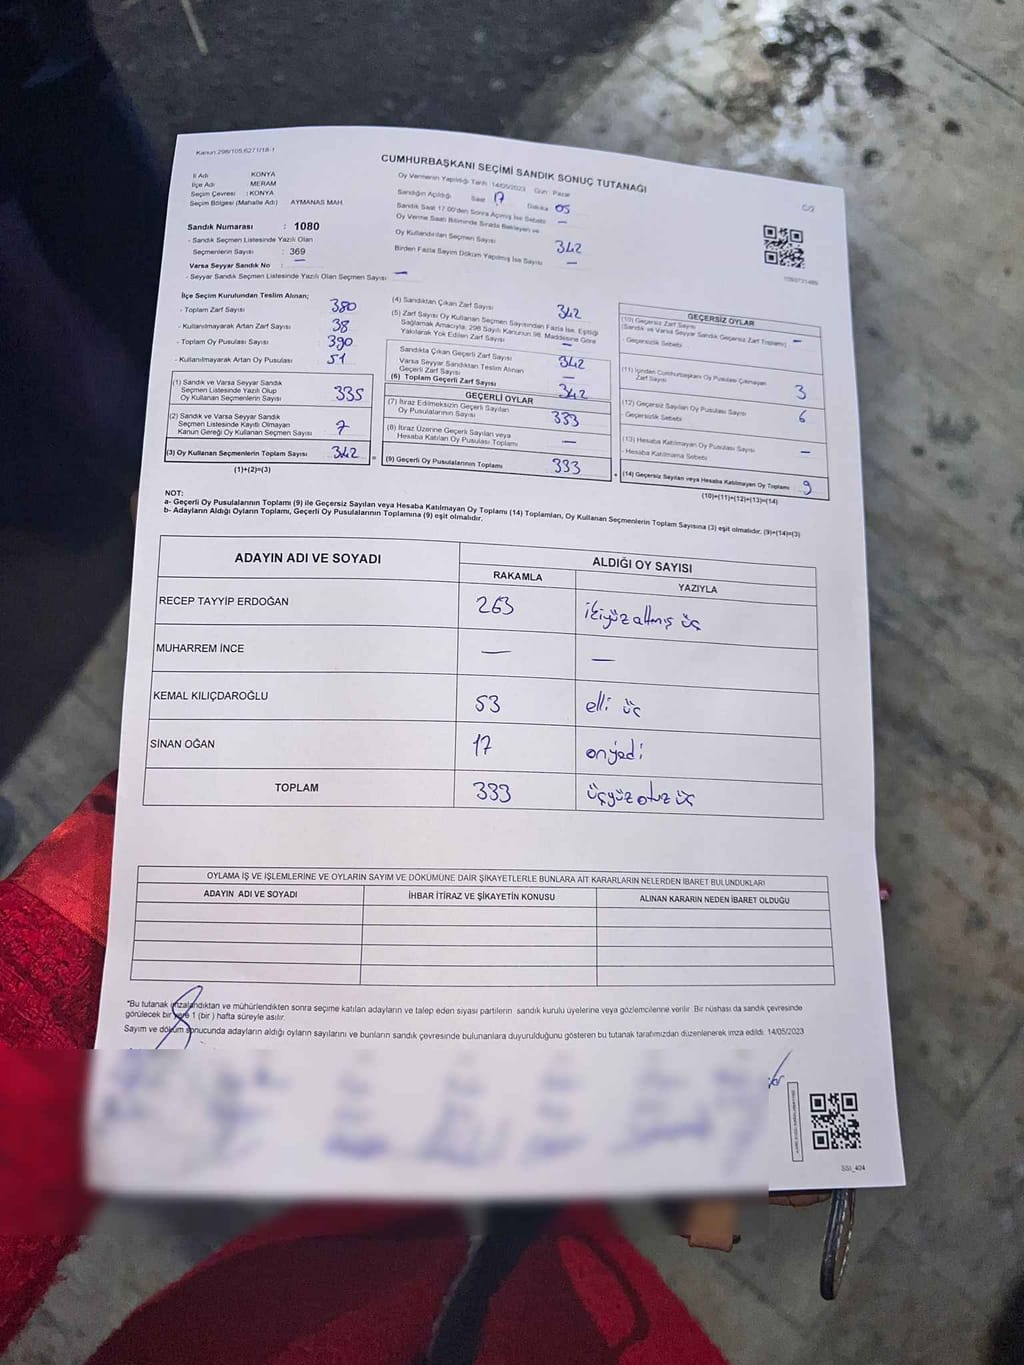 Kanun 298/105,6271/18-1
CUMHURBAŞKANI SEÇİMİ SANDIK SONUÇ TUTANAĞI
C/2
İl Adı KONYA
İlçe Adı MERAM
Seçim Çevresi : KONYA
Seçim Bölgesi (Mahalle Adı) AYMANAS MAH.
Sandık Numarası : 1080
- Sandık Seçmen Listesinde Yazılı Olan
Seçmenlerin Sayısı : 369
Varsa Seyyar Sandık No : —
- Seyyar Sandık Seçmen Listesinde Yazılı Olan Seçmen Sayısı —
Oy Vermenin Yapıldığı Tarih : 14/05/2023 Gün : Pazar
Sandığın Açıldığı Saat 17 Dakika 05
Sandık Saat 17.00'den Sonra Açılmış İse Sebebi —
Oy Verme Saati Bitiminde Sırada Bekleyen ve
Oy Kullandırılan Seçmen Sayısı 342
Birden Fazla Sayım Döküm Yapılmış İse Sayısı —
İlçe Seçim Kurulundan Teslim Alınan;
- Toplam Zarf Sayısı 380
- Kullanılmayarak Artan Zarf Sayısı 38
- Toplam Oy Pusulası Sayısı 390
- Kullanılmayarak Artan Oy Pusulası 51
(1) Sandık ve Varsa Seyyar Sandık
Seçmen Listesinde Yazılı Olup
Oy Kullanan Seçmenlerin Sayısı 335
(2) Sandık ve Varsa Seyyar Sandık
Seçmen Listesinde Kayıtlı Olmayan
Kanun Gereği Oy Kullanan Seçmen Sayısı 7
(3) Oy Kullanan Seçmenlerin Toplam Sayısı 342
(1)+(2)=(3)
(4) Sandıktan Çıkan Zarf Sayısı 342
(5) Zarf Sayısı Oy Kullanan Seçmen Sayısından Fazla İse, Eşitliği
Sağlamak Amacıyla, 298 Sayılı Kanunun 98. Maddesine Göre
Yakılarak Yok Edilen Zarf Sayısı —
Sandıkta Çıkan Geçerli Zarf Sayısı 342
Varsa Seyyar Sandıktan Teslim Alınan
Geçerli Zarf Sayısı —
(6) Toplam Geçerli Zarf Sayısı 342
GEÇERLİ OYLAR
(7) İtiraz Edilmeksizin Geçerli Sayılan
Oy Pusulalarının Sayısı 333
(8) İtiraz Üzerine Geçerli Sayılan veya
Hesaba Katılan Oy Pusulası Toplamı —
= (9) Geçerli Oy Pusulalarının Toplamı 333
GEÇERSİZ OYLAR
(10) Geçersiz Zarf Sayısı
(Sandık ve Varsa Seyyar Sandık Geçersiz Zarf Toplamı) —
- Geçersizlik Sebebi
(11) İçinden Cumhurbaşkanı Oy Pusulası Çıkmayan
Zarf Sayısı 3
(12) Geçersiz Sayılan Oy Pusulası Sayısı 6
- Geçersizlik Sebebi
(13) Hesaba Katılmayan Oy Pusulası Sayısı —
- Hesaba Katılmama Sebebi
+ (14) Geçersiz Sayılan veya Hesaba Katılmayan Oy Toplamı 9
(10)+(11)+(12)+(13)=(14)
NOT:
a- Geçerli Oy Pusulalarının Toplamı (9) ile Geçersiz Sayılan veya Hesaba Katılmayan Oy Toplamı (14) Toplamları, Oy Kullanan Seçmenlerin Toplam Sayısına (3) eşit olmalıdır. (9)+(14)=(3)
b- Adayların Aldığı Oyların Toplamı, Geçerli Oy Pusulalarının Toplamına (9) eşit olmalıdır.
ADAYIN ADI VE SOYADI ALDIĞI OY SAYISI
RAKAMLA YAZIYLA
RECEP TAYYİP ERDOĞAN 263 ikiyüz altmış üç
MUHARREM İNCE — —
KEMAL KILIÇDAROĞLU 53 elli üç
SİNAN OĞAN 17 onyedi
TOPLAM 333 üçyüz otuz üç
OYLAMA İŞ VE İŞLEMLERİNE VE OYLARIN SAYIM VE DÖKÜMÜNE DAİR ŞİKAYETLERLE BUNLARA AİT KARARLARIN NELERDEN İBARET BULUNDUKLARI
ADAYIN ADI VE SOYADI İHBAR İTİRAZ VE ŞİKAYETİN KONUSU ALINAN KARARIN NEDEN İBARET OLDUĞU
"Bu tutanak imzalandıktan ve mühürlendikten sonra seçime katılan adayların ve talep eden siyasi partilerin sandık kurulu üyelerine veya gözlemcilerine verilir. Bir nüshası da sandık çevresinde
görülecek bir yere 1 (bir) hafta süreyle asılır.
Sayım ve döküm sonucunda adayların aldığı oyların sayılarını ve bunların sandık çevresinde bulunanlara duyurulduğunu gösteren bu tutanak tarafımızdan düzenlenerek imza edildi. 14/05/2023
SSI_404